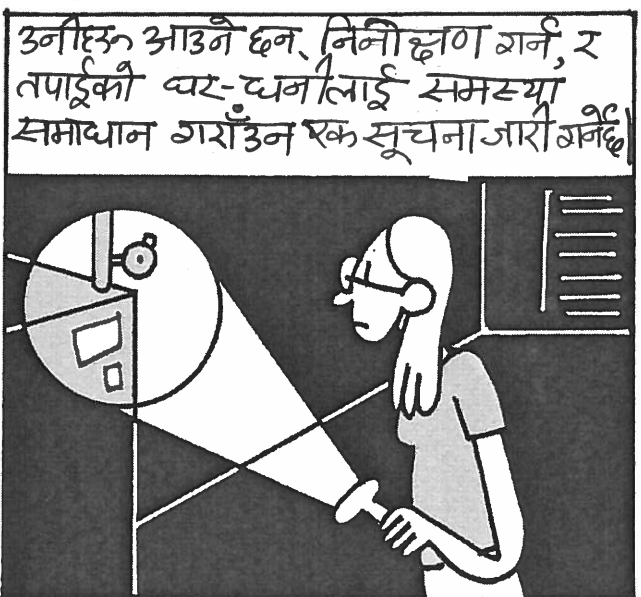 उनीहरू आउने छन्, निरीक्षण गर्न, र
तपाईको घर-धनीलाई समस्या
समाधान गराउँन एक सूचना जारी गर्नेछ।